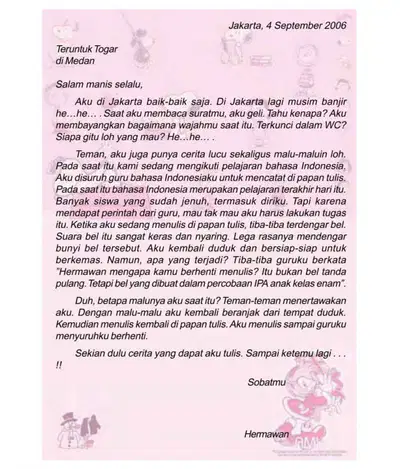 Jakarta, 4 September 2006
Teruntuk Togar
di Medan
Salam manis selalu,
Aku di Jakarta baik-baik saja. Di Jakarta lagi musim banjir
he…he… . Saat aku membaca suratmu, aku geli. Tahu kenapa? Aku
membayangkan bagaimana wajahmu saat itu. Terkunci dalam WC?
Siapa gitu loh yang mau? He…he… .
Teman, aku juga punya cerita lucu sekaligus malu-maluin loh.
Pada saat itu kami sedang mengikuti pelajaran bahasa Indonesia,
Aku disuruh guru bahasa Indonesiaku untuk mencatat di papan tulis.
Pada saat itu bahasa Indonesia merupakan pelajaran terakhir hari itu.
Banyak siswa yang sudah jenuh, termasuk diriku. Tapi karena
mendapat perintah dari guru, mau tak mau aku harus lakukan tugas
itu. Ketika aku sedang menulis di papan tulis, tiba-tiba terdengar bel.
Suara bel itu sangat keras dan nyaring. Lega rasanya mendengar
bunyi bel tersebut. Aku kembali duduk dan bersiap-siap untuk
berkemas. Namun, apa yang terjadi? Tiba-tiba guruku berkata
"Hermawan mengapa kamu berhenti menulis? Itu bukan bel tanda
pulang. Tetapi bel yang dibuat dalam percobaan IPA anak kelas enam".
Duh, betapa malunya aku saat itu? Teman-teman menertawakan
aku. Dengan malu-malu aku kembali beranjak dari tempat duduk.
Kemudian menulis kembali di papan tulis. Aku menulis sampai guruku
menyuruhku berhenti.
Sekian dulu cerita yang dapat aku tulis. Sampai ketemu lagi . . .
!!
Sobatmu
Hermawan